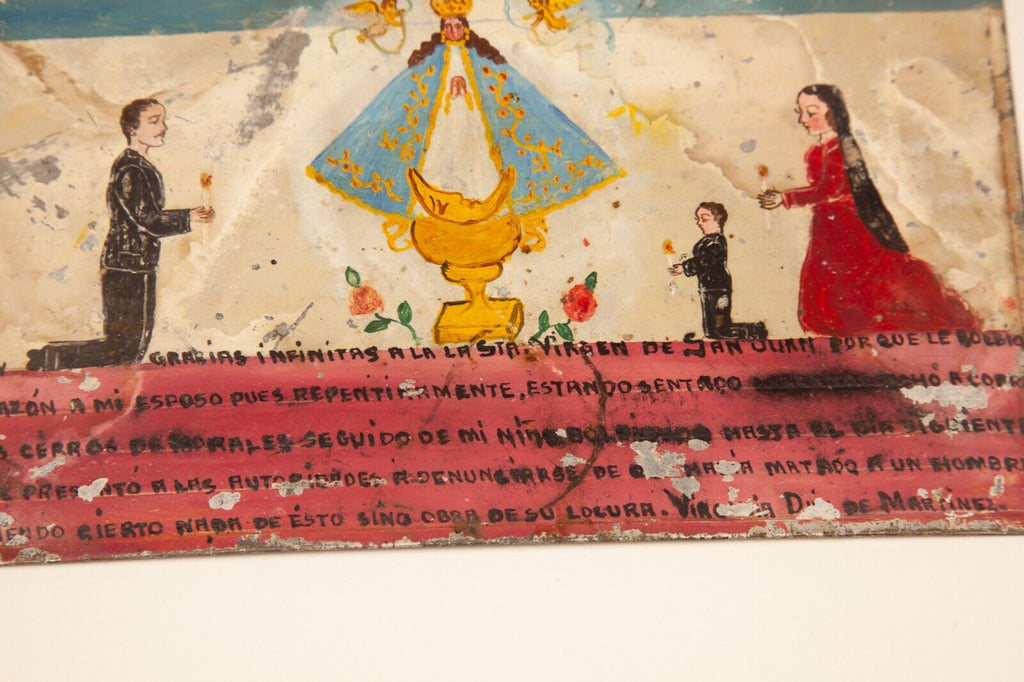 GRACIAS INFINITAS A LA LA STA. VIRGEN DE SAN JUAN POR QUE LE
AZÓN A MI ESPOSO PUES REPENTINAMENTE, ESTANDO SENTADO A
CERROS DE MORALES SEGUIDO DE MI NIÑO HASTA EL DIA SIGUIENTE
PRESENTÓ A LAS AUTORIDADES A DENUNCIARSE DE MATADO A UN HOMBRE
CIERTO NADA DE ÉSTO SINO OBRA DE SU LOCURA. DE MARTINEZ.